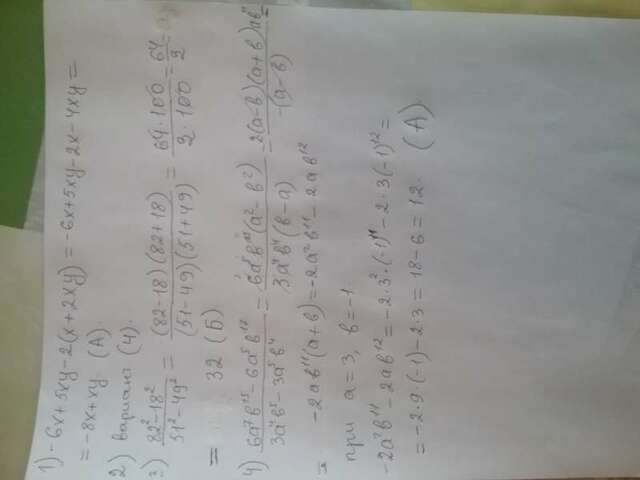 1) -6x+5xy-2(x+2xy) = -6x+5xy-2x-4xy=
= -8x+xy. (А)
2) вариант (4).
3) (82²-18²)/(51²-49²) = ((82-18)(82+18))/((51-49)(51+49)) = (64·100)/(2·100) = 64/2 =
= 32 (Б)
4) (6a⁷b¹⁵-6a⁵b¹⁷)/(3a⁴b⁵-3a⁵b⁴) = (6a⁵b¹⁵(a²-b²))/(3a⁴b⁴(b-a)) = (2(a-b)(a+b)ab¹¹)/(-(a-b)) =
= -2ab¹¹(a+b)=-2a²b¹¹-2ab¹²
при a=3, b=-1.
-2a²b¹¹-2ab¹²=-2·3²·(-1)¹¹-2·3(-1)¹²=
= -2·9·(-1)-2·3 = 18-6 = 12. (А)